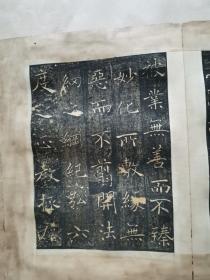 被業無善而不臻
妙化所敷緣無
惡而不翦開法
網之綱紀弘六
度之正教拯群